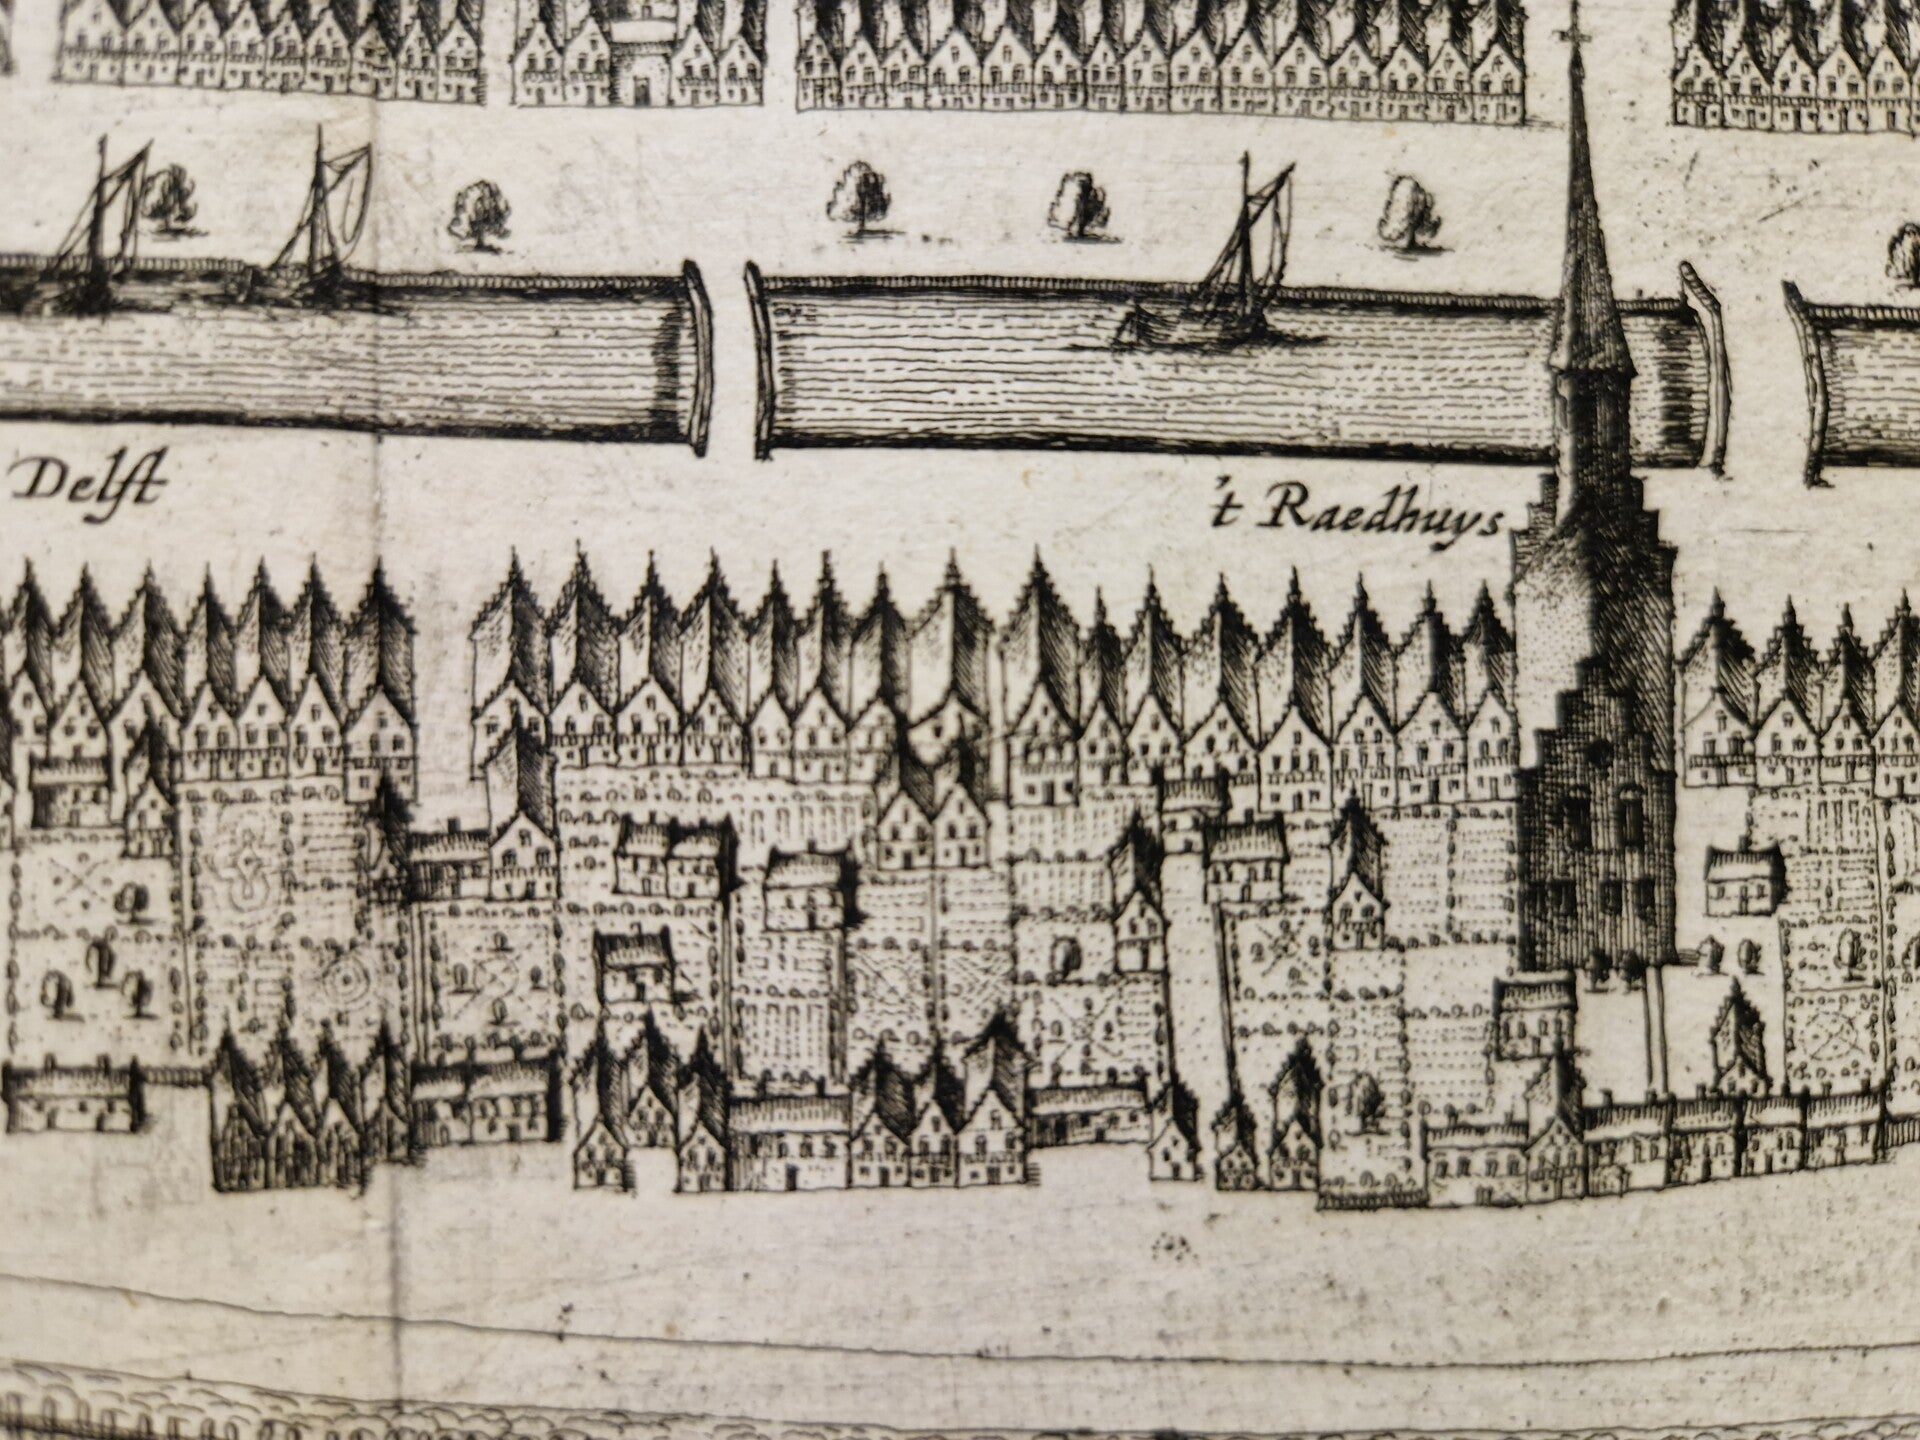 Delft
't Raedhuys